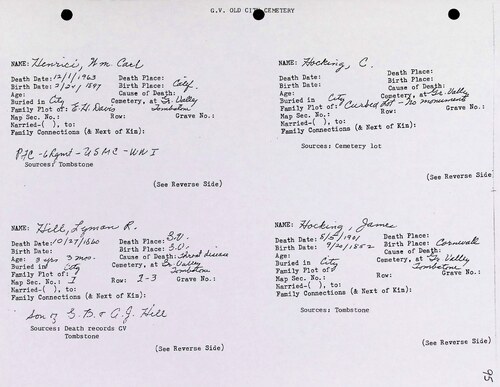 G.V. OLD CITY CEMETERY
NAME: Henrici, Wm Carl
Death Date: 12/11/1963 Death Place:
Birth Date: 2/21/1897 Birth Place: Calif.
Age: Cause of Death:
Buried in City Cemetery, at Gr. Valley
Family Plot of: E.H. Davis Tombstone
Map Sec. No.: Row: Grave No.:
Married-( ), to:
Family Connections (& Next of Kin):
PFC - 6 Rgmt - USMC - WW I
Sources: Tombstone
(See Reverse Side)
NAME: Hocking, C.
Death Date: Death Place:
Birth Date: Birth Place:
Age: Cause of Death:
Buried in City Cemetery, at Gr. Valley
Family Plot of: Curbed Lot - No monument
Map Sec. No.: Row: Grave No.:
Married-( ), to:
Family Connections (& Next of Kin):
Sources: Cemetery lot
(See Reverse Side)
NAME: Hill, Lyman R.
Death Date: 10/27/1860 Death Place: G.V.
Birth Date: Birth Place: G.V.
Age: 3 yrs 3 mos. Cause of Death: Throat disease
Buried in City Cemetery, at Gr. Valley
Family Plot of: Tombstone
Map Sec. No.: I Row: I-3 Grave No.:
Married-( ), to:
Family Connections (& Next of Kin):
Son of G.B. & A.J. Hill
Sources: Death records CV
Tombstone
(See Reverse Side)
NAME: Hocking, James
Death Date: 5/5/1901 Death Place:
Birth Date: 9/20/1852 Birth Place: Cornwall
Age: Cause of Death:
Buried in City Cemetery, at Gr. Valley
Family Plot of: Tombstone
Map Sec. No.: Row: Grave No.:
Married-( ), to:
Family Connections (& Next of Kin):
Sources: Tombstone
(See Reverse Side)
95